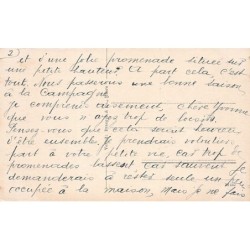 2)
et d'une jolie promenade située sur
une petite hauteur. A part cela c'est
tout. Nous passerions une bonne saison
à la Campagne.
Je comprends aisément, chère Yvonne
que vous n'ayez trop de loisirs.
Pensez vous que cela serait
d'être ensemble. Je prendrais volontiers
part à votre petite vie, car trop de
promenades lassent
demanderais à rester seule un peu
occupée à la maison, mais je ne fais